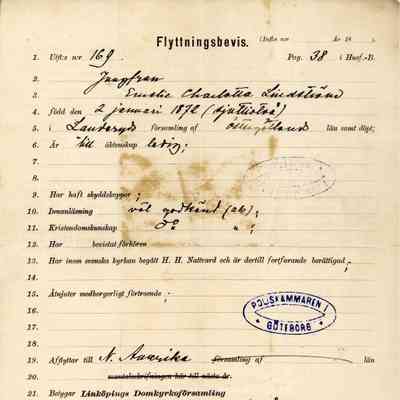 Flyttningsbevis. (Infl:s nr År 18 .)
1. Utfl:s nr 169. Pag. 38 i Husf.-B.
2. Jungfrun
3. Emelie Charlotta Lindström
4. född den 2 januari 1872 (sjuttiotvå)
5. i Landeryd församling af Östergötland län samt döpt;
6. Är till äktenskap ledig;
7.
8.
9. Har haft skyddskoppor ;
10. Innanläsning väl godkänd (ab);
11. Kristendomskunskap Do " ;
12. Har bevistat förhören
13. Har inom svenska kyrkan begått H. H. Nattvard och är dertill fortfarande berättigad ;
14.
15. Åtnjuter medborgerligt förtroende ;
16.
17.
POLISKAMMAREN I GÖTEBORG
18.
19. Afflyttar till N. Amerika församling af län
20.
21. Betygar Linköpings Domkyrkoförsamling